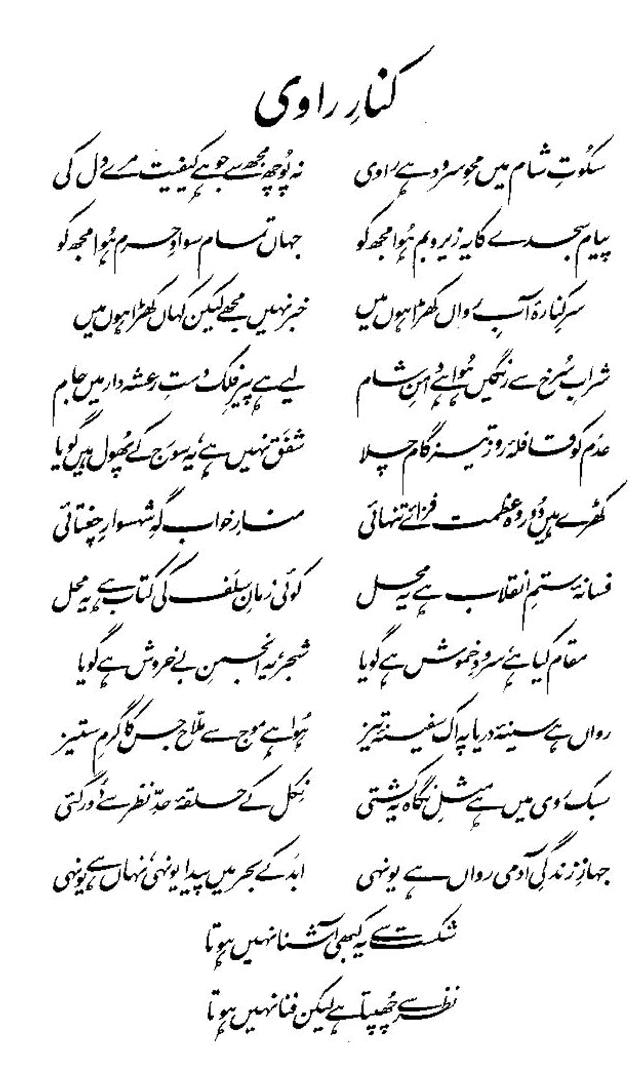 کنارِ راوی
سکُوتِ شام میں محوِ سرود ہے راوی نہ پُوچھ مجھ سے جو ہے کیفیت مرے دل کی
پیام سجدے کا یہ زیروبم ہُوا مجھ کو جہاں تمام سوادِ حرم ہُوا مجھ کو
سرِ کنارۂ آبِ رواں کھڑا ہوں میں خبر نہیں مجھے لیکن کہاں کھڑا ہوں میں
شرابِ سُرخ سے رنگیں ہُوا ہے دامنِ شام لیے ہے پیرِ فلک دستِ رعشہ دار میں جام
عدَم کو قافلۂ روز تیزگام چلا شفَق نہیں ہے، یہ سورج کے پھُول ہیں گویا
کھڑے ہیں دُور وہ عظمت فزائے تنہائی منارِ خواب گہِ شہسوارِ چغتائی
فسانۂ ستمِ انقلاب ہے یہ محل کوئی زمانِ سلَف کی کتاب ہے یہ محل
مقام کیا ہے، سرودِ خموش ہے گویا شجر، یہ انجمنِ بے خروش ہے گویا
رواں ہے سینۂ دریا پہ اک سفینۂ تیز ہُوا ہے موج سے ملّاح جس کا گرمِ ستیز
سبک روی میں ہے مثلِ نگاہ یہ کشتی نِکل کے حلقۂ حدِّ نظر سے دُور گئی
جہازِ زندگیِ آدمی رواں ہے یونہی ابَد کے بحر میں پیدا یونہی، نہاں ہے یونہی
شکست سے یہ کبھی آشنا نہیں ہوتا
نظر سے چھُپتا ہے لیکن فنا نہیں ہوتا